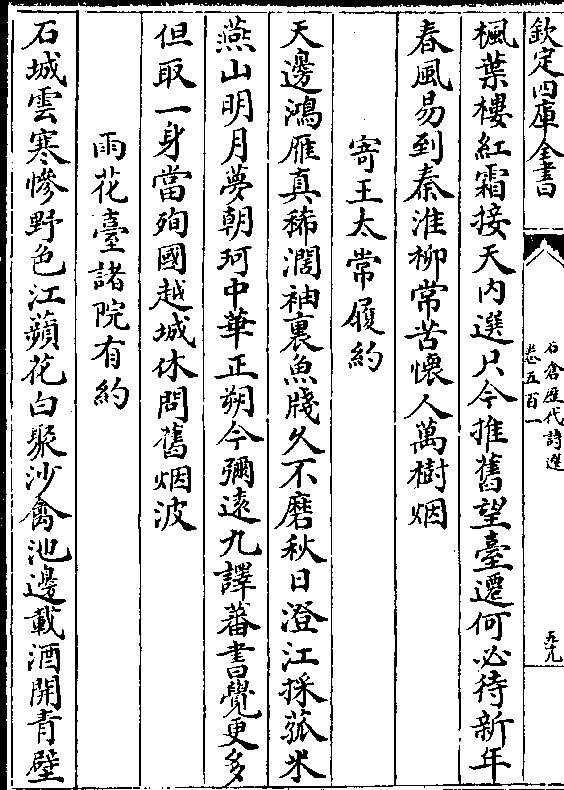 欽定四庫全書
石倉歷代詩選
卷五百一
楓葉樓紅霜接天内選只今推舊望臺遷何必待新年
春風易到秦淮柳常苦懷人萬樹烟
寄王太常履約
天邊鴻雁真稀濶袖裏魚牋久不磨秋日澄江採菰米
燕山明月夢朝珂中華正朔今彌遠九譯蕃書覺更多
但取一身當殉國越城休問舊烟波
雨花臺諸院有約
石城雲寒慘野色江蘋花白聚沙禽池邊載酒開青壁